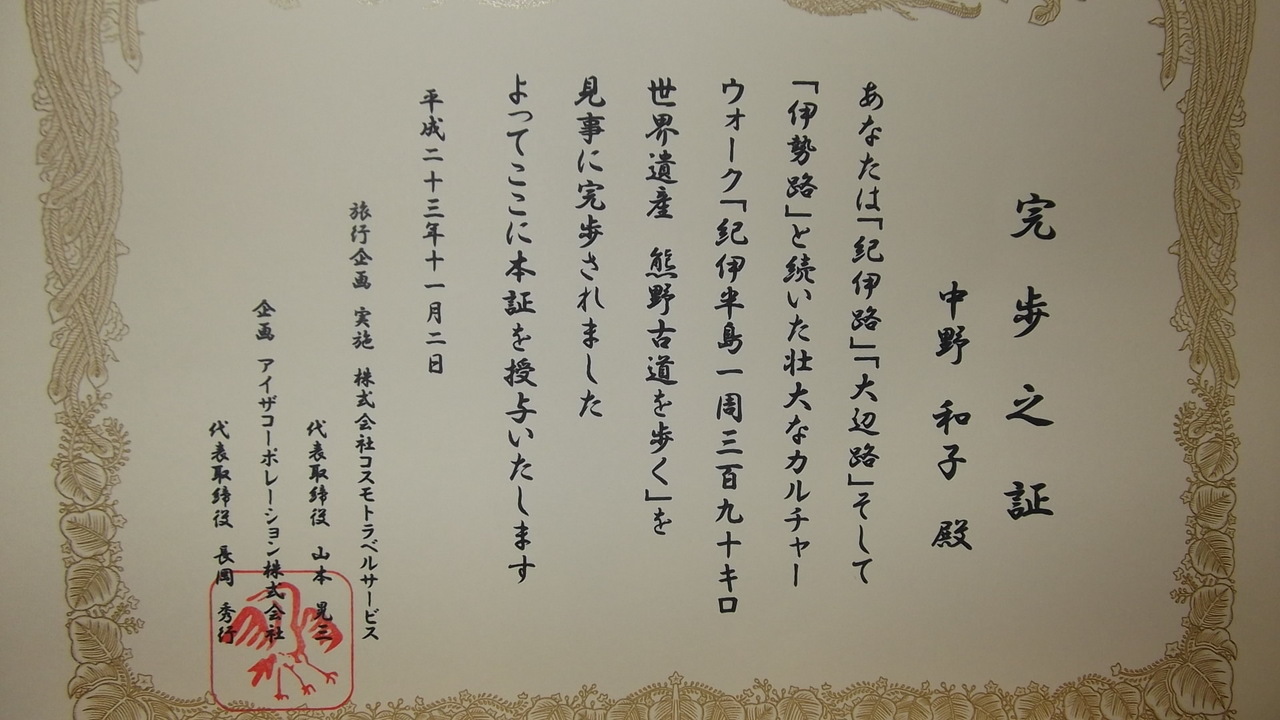 完歩之証
中野 和子 殿
あなたは「紀伊路」「大辺路」そして
「伊勢路」と続いた壮大なカルチャー
ウォーク「紀伊半島一周三百九十キロ
世界遺産 熊野古道を歩く」を
見事に完歩されました
よってここに本証を授与いたします
平成二十三年十一月二日
旅行企画 実施 株式会社コスモトラベルサービス
代表取締役 山本 晃三
企画 アイザコーポレーション株式会社
代表取締役 長岡 秀行